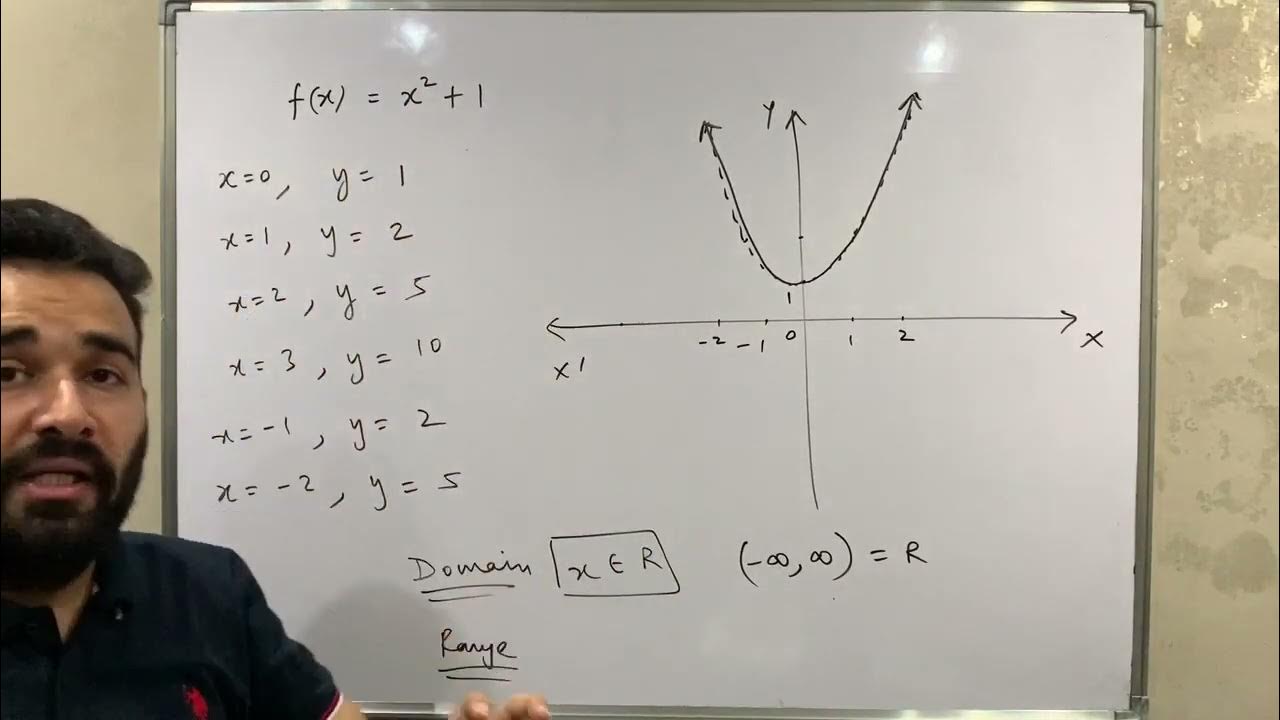 f(x) = x² + 1
x=0, y = 1
x=1, y = 2
x=2, y = 5
x = 3, y = 10
x=-1, y = 2
x = -2, y = 5
Y
1
-2 -1 0 1 2
X' X
Domain x ∈ R (-∞, ∞) = R
Range